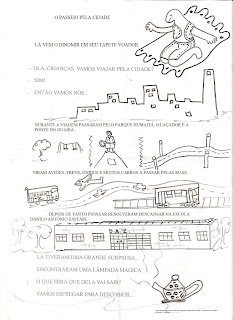 O PASSEIO PELA CIDADE
LÁ VEM O DINOMIR EM SEU TAPETE VOADOR...
- OLÁ, CRIANÇAS, VAMOS VIAJAR PELA CIDADE?
- SIM!
- ENTÃO VAMOS NÓS...
DURANTE A VIAGEM PASSARAM PELO PARQUE HUMAITÁ, O LAÇADOR E A
PONTE DO GUAÍBA.
VIRAM AVIÕES, TRENS, ÔNIBUS E MUITOS CARROS A PASSAR PELAS RUAS.
DEPOIS DE TANTO PASSEAR RESOLVERAM DESCANSAR NA ESCOLA
DANILO ANTÔNIO ZAFFARI.
LÁ TIVERAM UMA GRANDE SURPRESA...
ENCONTRARAM UMA LÂMPADA MÁGICA.
O QUE SERÁ QUE DELA VAI SAIR?
VAMOS ESFREGAR PARA DESCOBRIR...